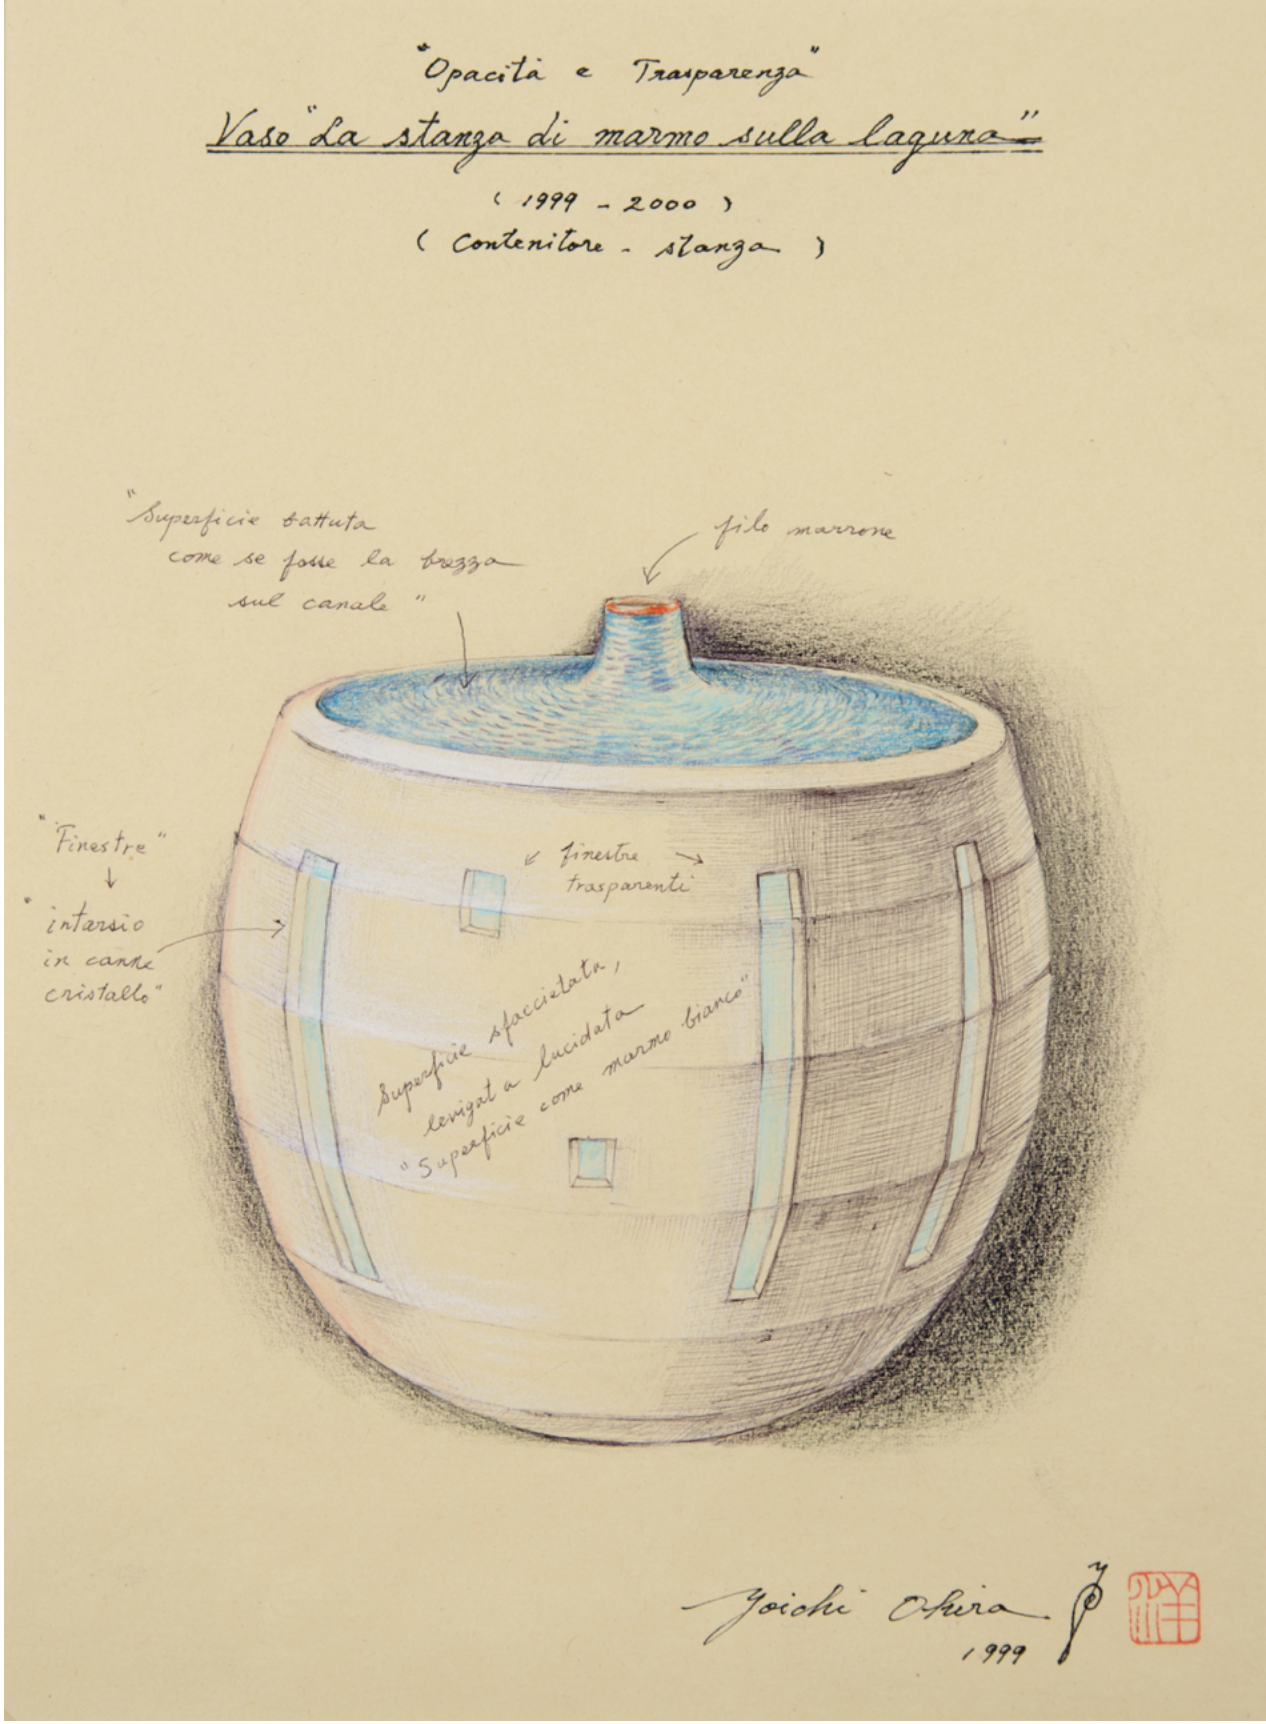 "Opacità e Trasparenza"
Vaso "La stanza di marmo sulla laguna"
( 1999 - 2000 )
( Contenitore - stanza )
"Superficie battuta
come se fosse la brezza
sul canale"
filo marrone
"Finestre"
"intarsio
in canne
cristallo"
finestre
trasparenti
Superficie sfaccietata,
levigata lucidata
"Superficie come marmo bianco"
Yoichi Ohira
1999
洋